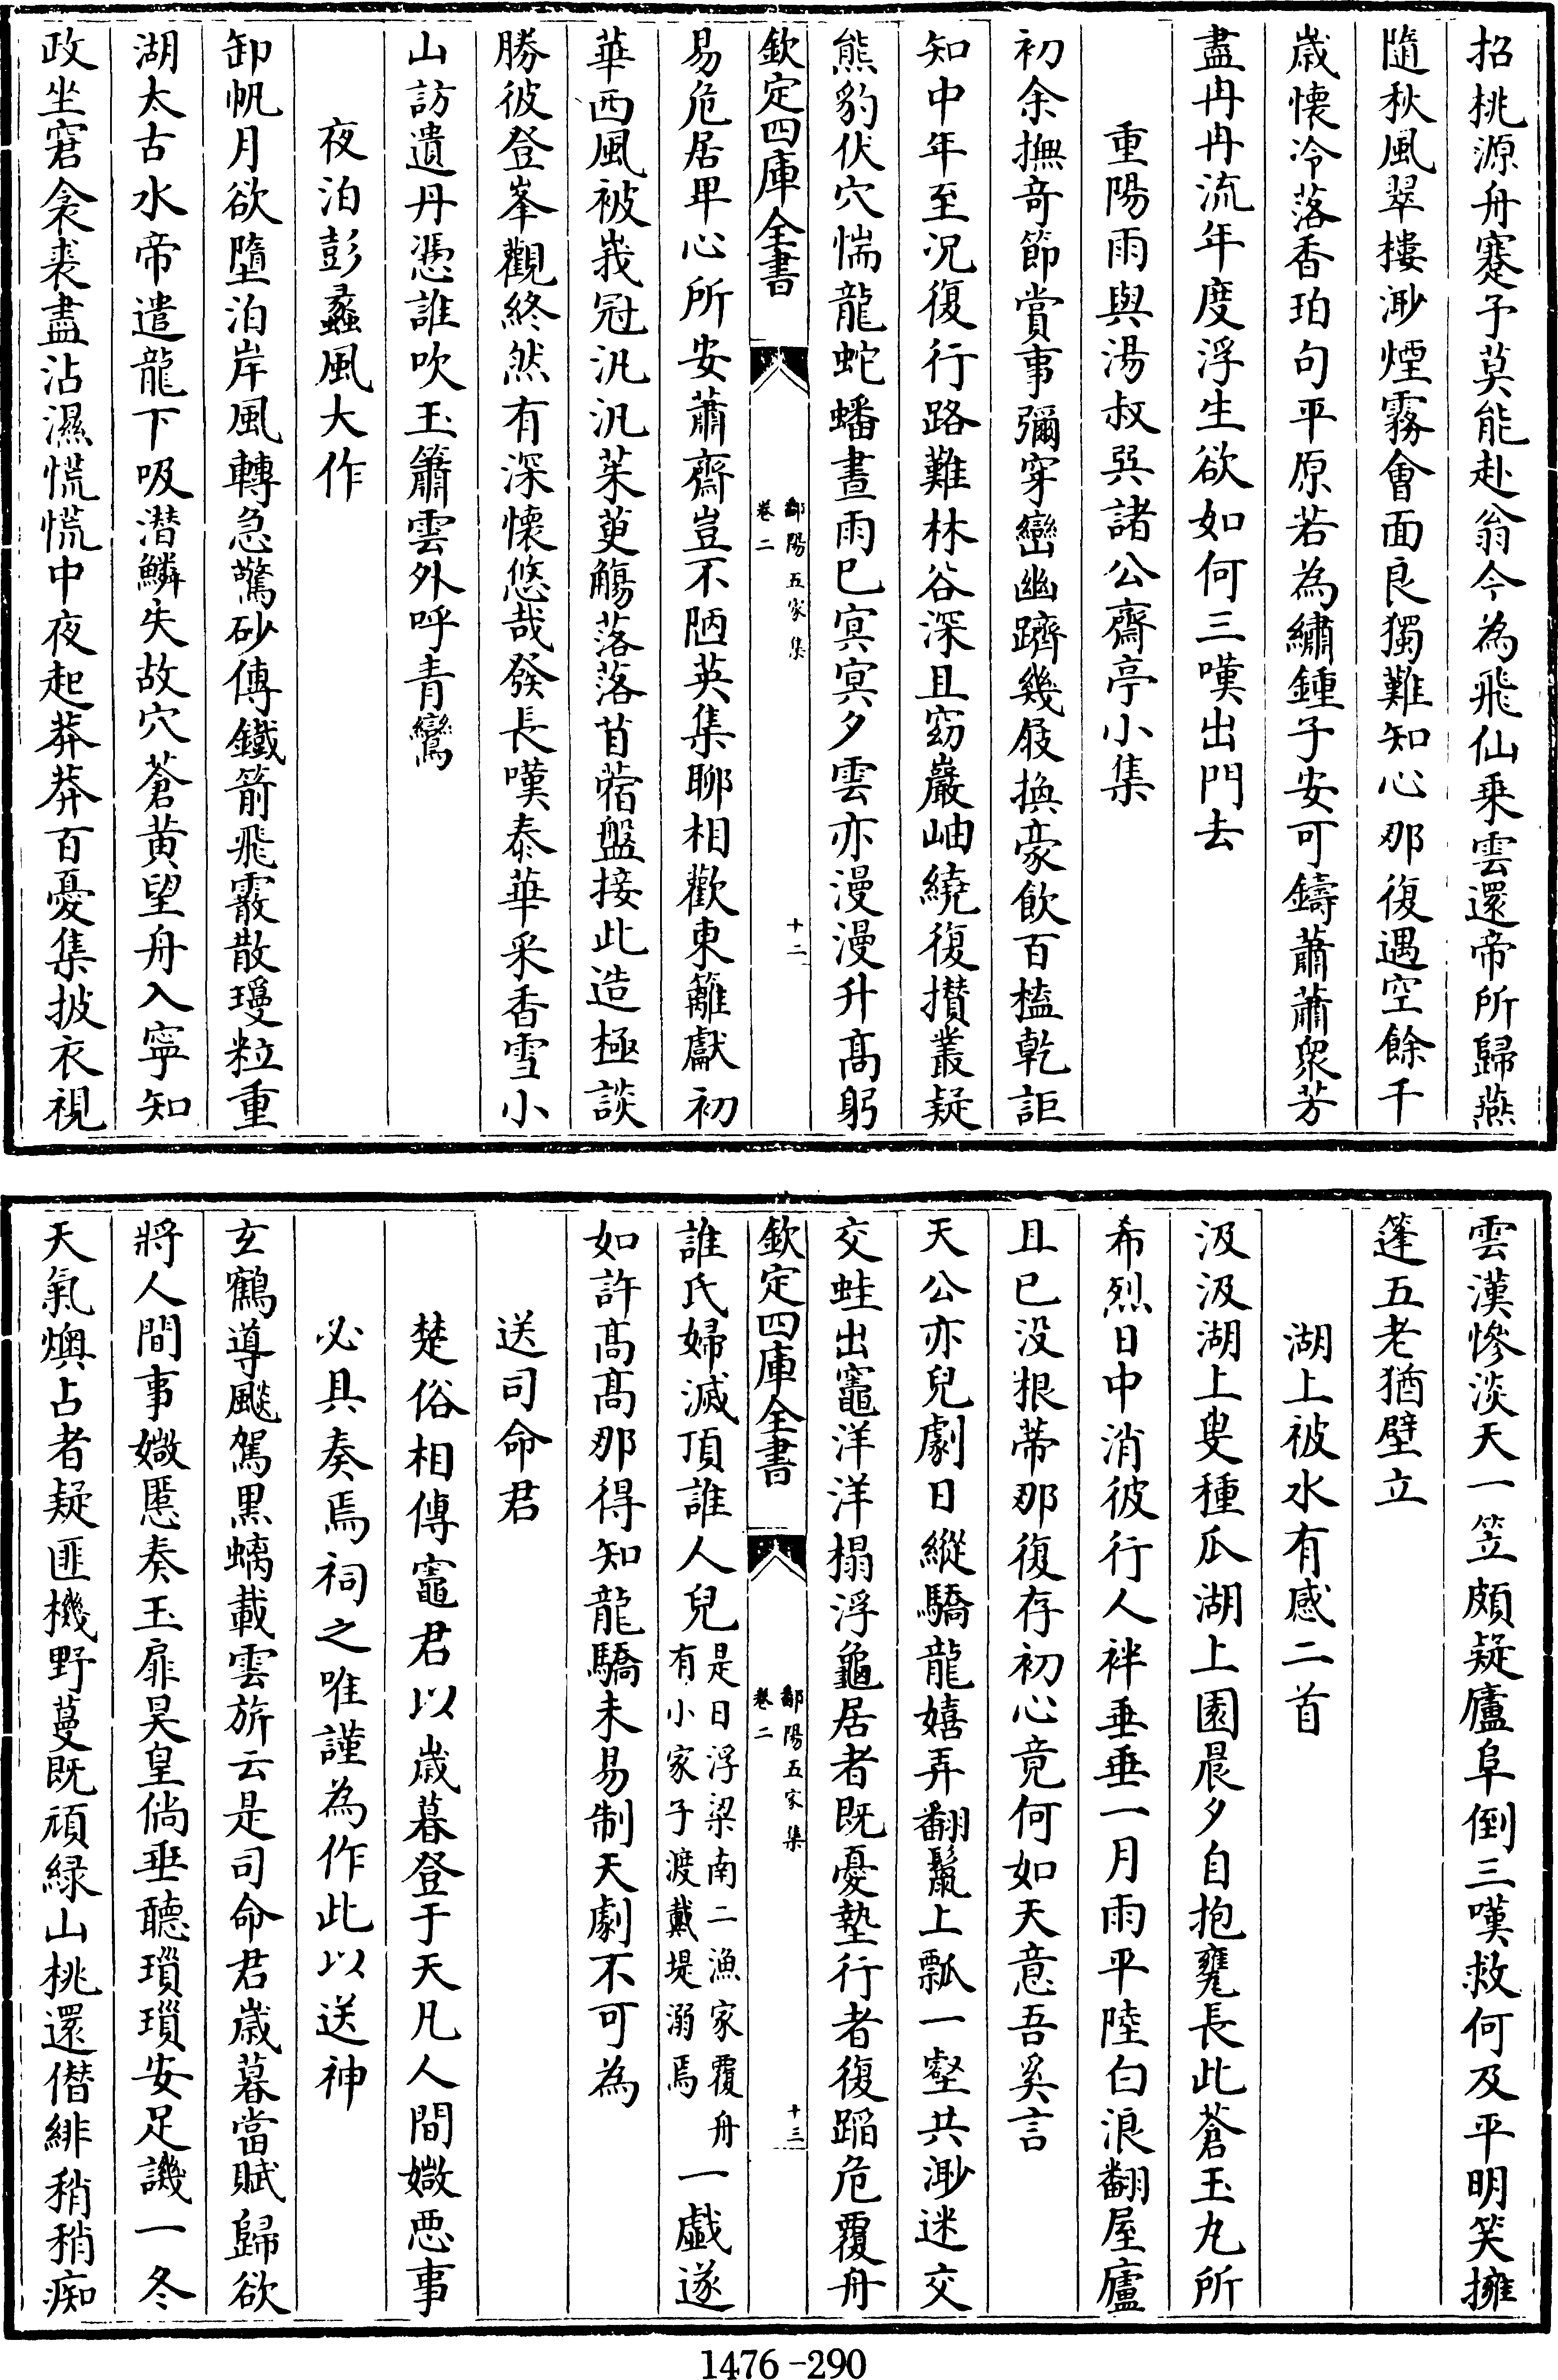 招桃源舟蹇予莫能赴翁今為飛仙乗雲還帝所歸燕
隨秋風翠樓渺煙霧會面良獨難知心那復遇空餘千
歲懷冷落香珀句平原若為繡鍾子安可鑄蕭蕭衆芳
盡冉冉流年度浮生欲如何三嘆出門去
重陽雨與湯叔㢲諸公齋亭小集
初余撫竒節賞事彌穿巒幽躋幾屐換豪飲百榼乾詎
知中年至况復行路難林谷深且窈巖岫繞復攢叢疑
熊豹伏穴惴龍蛇蟠晝雨已㝠㝠夕雲亦漫漫升髙躬
欽定四庫全書
鄱陽五家集
卷二
十二
易危居卑心所安蕭齋豈不陋英集聊相歡東籬獻初
華西風被峩冠汎汎茱萸觴落落苜蓿盤接此造極談
勝彼登峯觀終然有深懷悠哉發長嘆泰華采香雪小
山訪遺丹憑誰吹玉簫雲外呼青鸞
夜泊彭蠡風大作
卸帆月欲墮泊岸風轉急驚砂傳鐵箭飛霰散璗粒重
湖太古水帝遣龍下吸潛鱗失故穴蒼黄望舟入寧知
政坐窘衾裘盡沾濕慌慌中夜起莽莽百憂集披衣視
雲漢慘淡天一笠頗疑廬阜倒三嘆救何及平明笑擁
篷五老猶壁立
湖上被水有感二首
汲汲湖上叟種瓜湖上園晨夕自抱甕長此蒼玉丸所
希烈日中消彼行人袢垂垂一月雨平陸白浪翻屋廬
且已没根蒂那復存初心竟何如天意吾奚言
天公亦兒劇日縱驕龍嬉弄翻鬣上瓢一壑共渺迷交
交蛙出竈洋洋榻浮龜居者既憂墊行者復蹈危覆舟
欽定四庫全書
鄱陽五家集
卷二
十三
誰氏婦滅頂誰人兒是日浮梁南二漁家覆舟有小家子渡戴堤溺焉一戯遂
如許髙髙那得知龍驕未易制天劇不可為
送司命君
楚俗相傳竈君以歲暮登于天凡人間媺惡事
必具奏焉祠之唯謹為作此以送神
玄鶴導飈駕黑螭載雲旂云是司命君歲暮當賦歸欲
將人間事媺慝奏玉扉昊皇倘垂聽瑣瑣安足譏一冬
天氣燠占者疑匪機野蔓既頑緑山桃還僭緋稍稍痴
1476-290